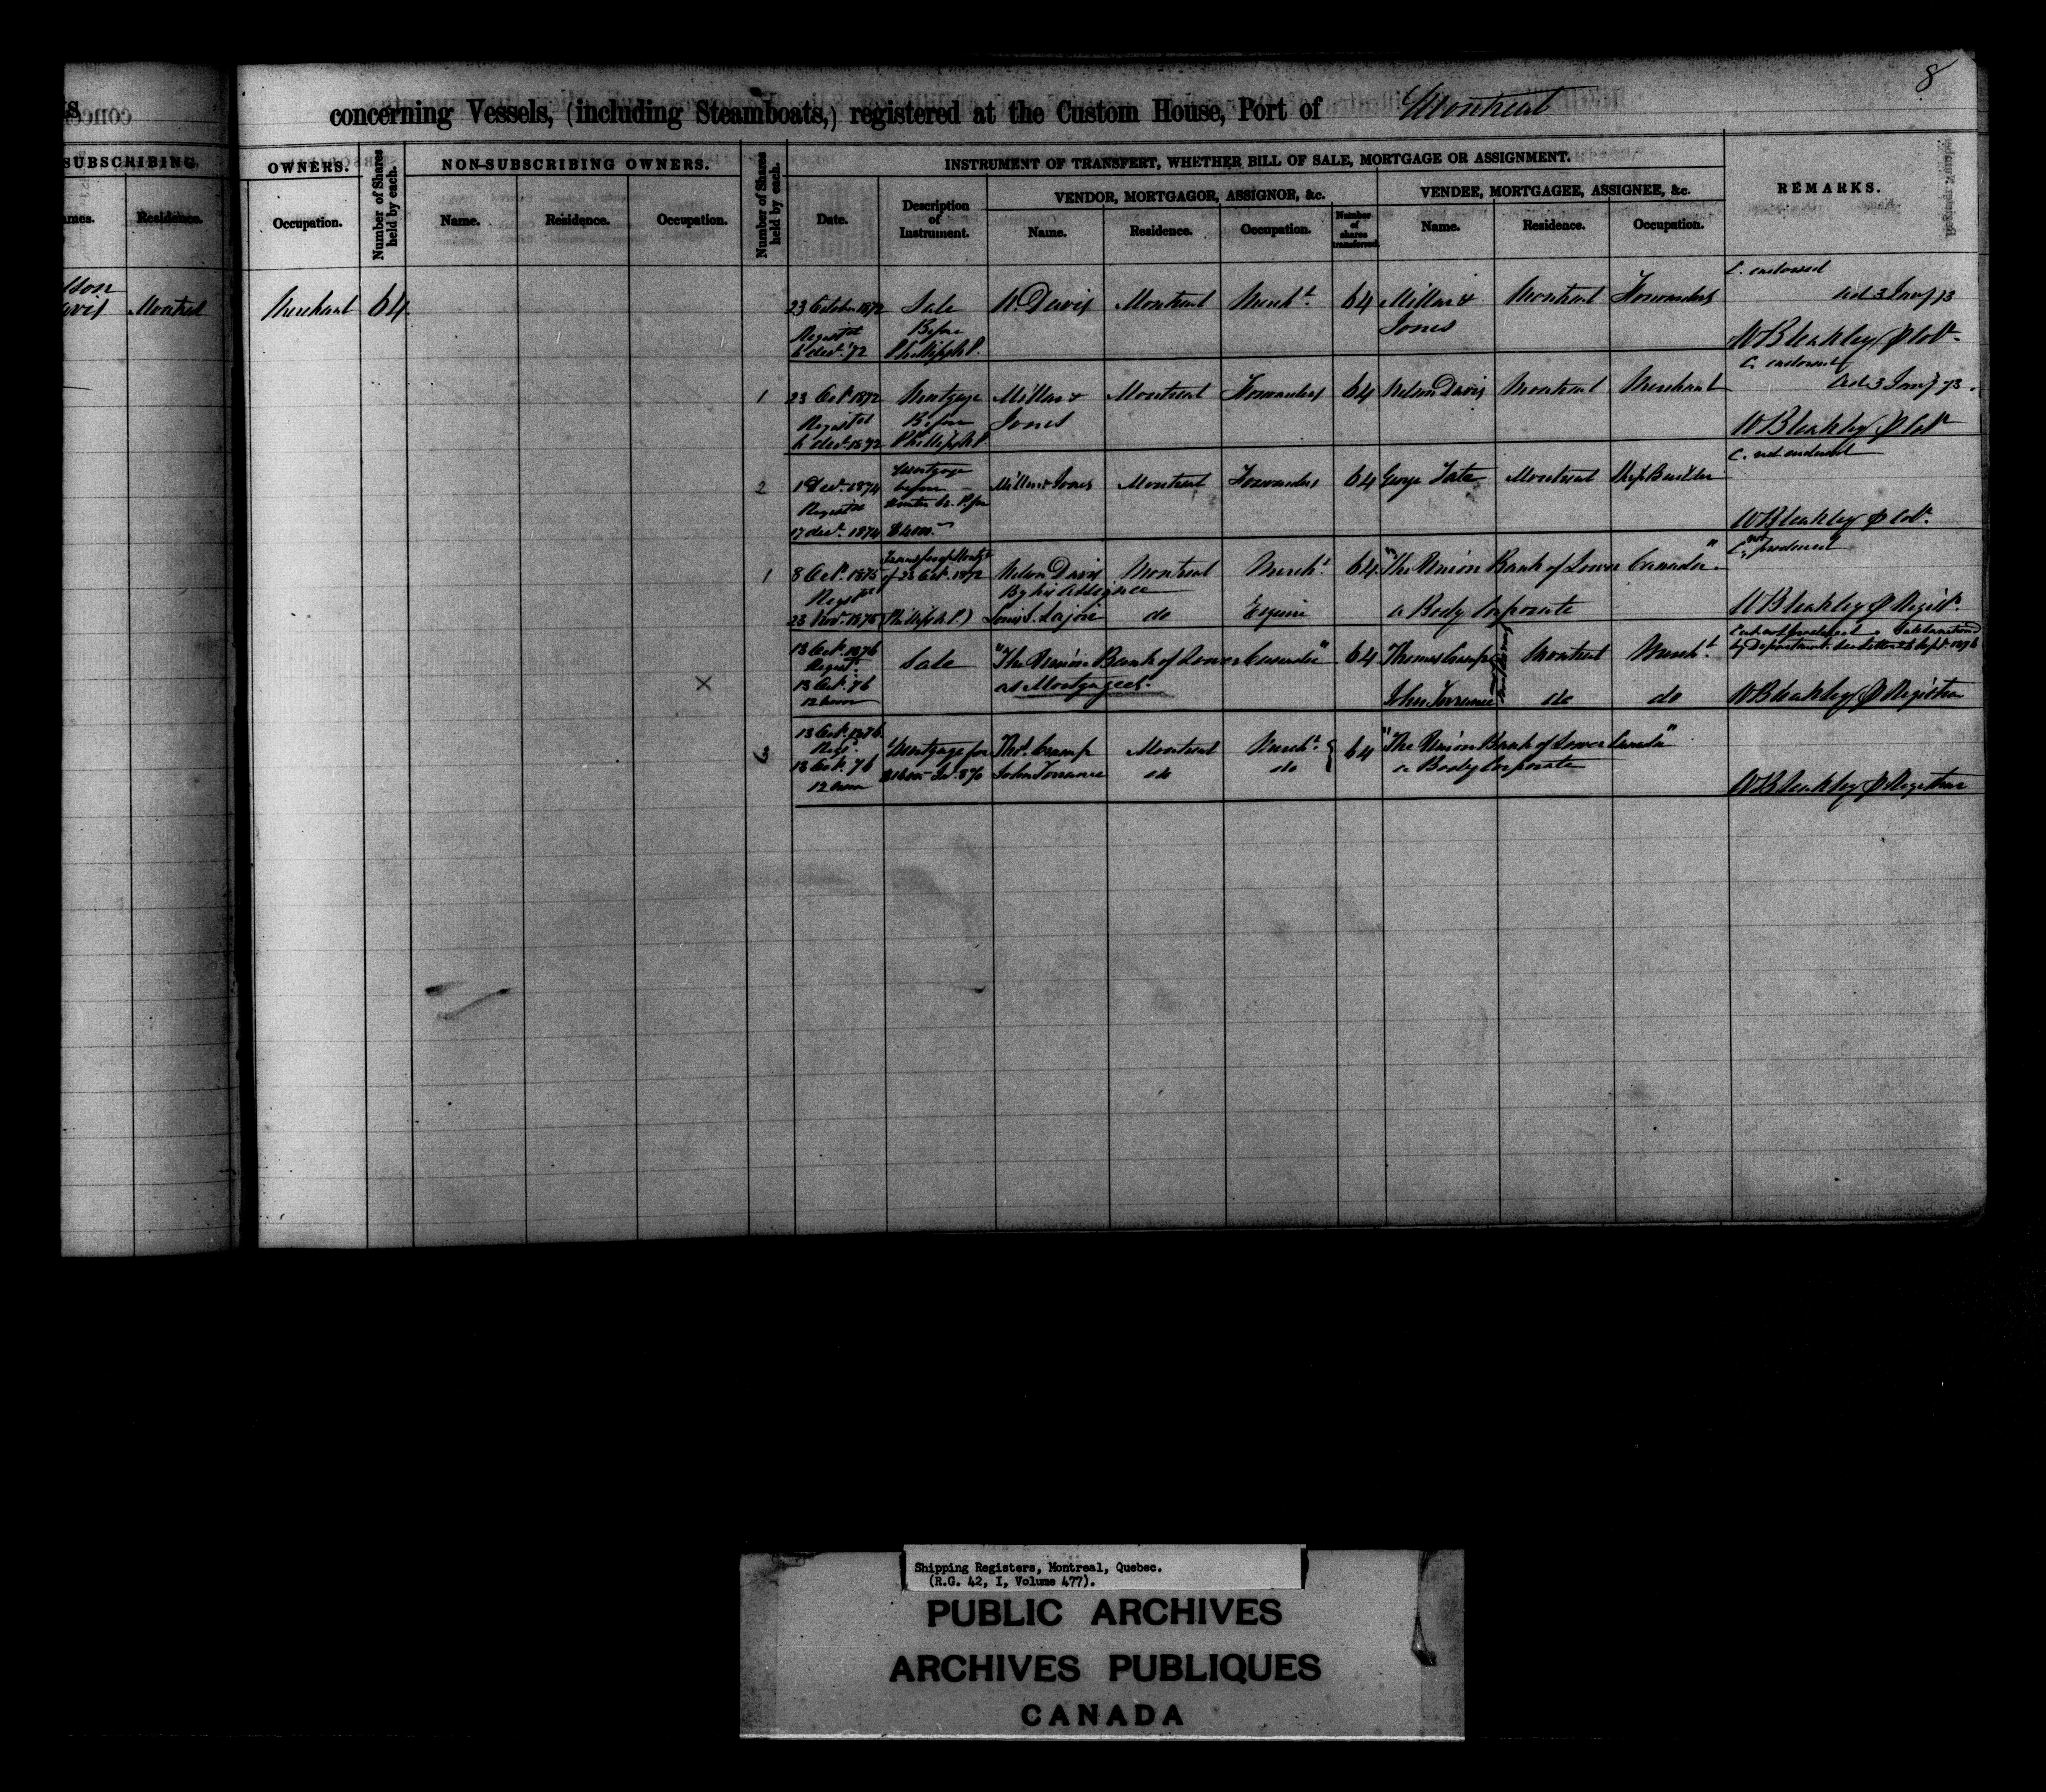 8
concerning Vessels, (including Steamboats,) registered at the Custom House, Port of Montreal
SUBSCRIBING
OWNERS.
Number of Shares held by each.
NON-SUBSCRIBING OWNERS.
Number of Shares held by each.
INSTRUMENT OF TRANSFERT, WHETHER BILL OF SALE, MORTGAGE OR ASSIGNMENT.
REMARKS.
VENDOR, MORTGAGOR, ASSIGNOR, &c.
VENDEE, MORTGAGEE, ASSIGNEE, &c.
Residence.
Occupation.
Name.
Residence.
Occupation.
Date.
Description of Instrument.
Name.
Residence.
Occupation.
Number of shares transferred.
Name.
Residence.
Occupation.
C. endorsed
Montreal Merchant 64 23 October 1872 Sale N. Davis Montreal Mercht 64 Millar & Montreal Forwarders
Jones
Registd Before
6 decr. '72 Phillips N.P.
W Bleakley
C. endorsed
1 23 Oct 1872 Mortgage Millar & Montreal Forwarders 64 Nelson Davis Montreal Merchant
Registd Before Jones
6 decr. 1872 Phillips N.P.
W Bleakley
C. not endorsed
2 1 Decr. 1874 Mortgage before Millar & Jones Montreal Forwarders 64 George Tate Montreal Ship Builder
Registd Hunter N.P. for
17 decr. 1874 $4000.
W Bleakley
C. not produced
1 8 Oct. 1875 Transfer of Mortge of 23 Oct. 1872 Nelson Davis Montreal Mercht. 64 "The Union Bank of Lower Canada"
Registd By his Assignee
23 Novr. 1875 (Phillips N.P.) Louis J. Lajoie do Esquire a Body Corporate
W Bleakley
13 Oct. 1876 Sale "The Union Bank of Lower Canada" 64 Thomas Cramp Montreal Mercht.
Regist.
13 Oct. 76 as Mortgagees.
12 noon John Torrance do do
W Bleakley
13 Oct. 1876
Regd. Mortgage for Thos. Cramp Montreal Mercht. 64 "The Union Bank of Lower Canada"
13 Oct. 76 John Torrance do do a Body Corporate
12 noon
W Bleakley
Shipping Registers, Montreal, Quebec.
(R.G. 42, I, Volume 477).
PUBLIC ARCHIVES
ARCHIVES PUBLIQUES
CANADA